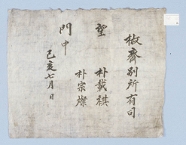 椒齋別所有司
望
朴載祺
朴宗燦
門中
己亥七月日